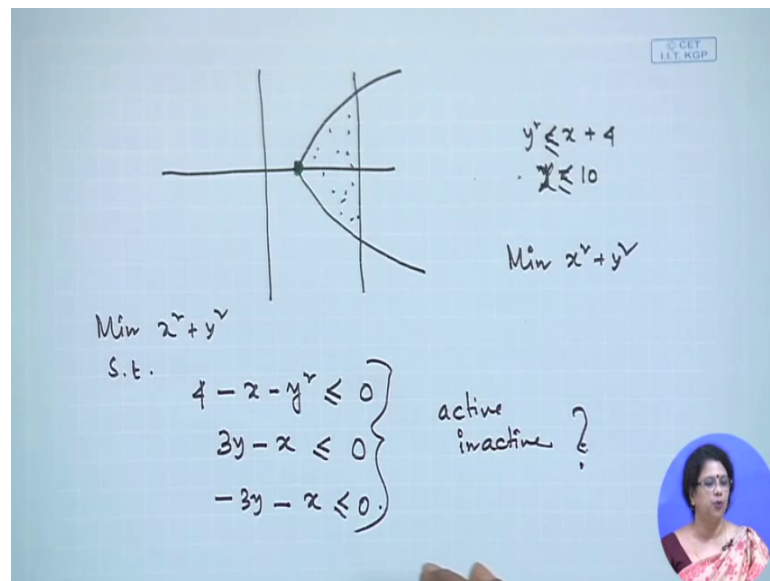 © CET
I.I.T. KGP
y² ≤ x + 4
x ≤ 10
Min x² + y²
Min x² + y²
S.t.
4 - x - y² ≤ 0
3y - x ≤ 0
-3y - x ≤ 0.
active
inactive ?